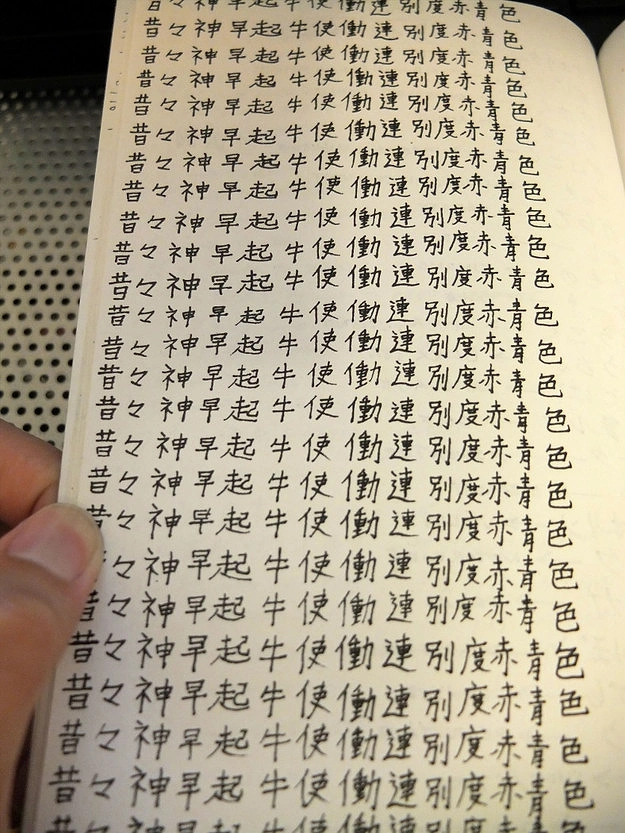 昔々神早起牛使働連別度赤青色
昔々神早起牛使働連別度赤青色
昔々神早起牛使働連別度赤青色
昔々神早起牛使働連別度赤青色
昔々神早起牛使働連別度赤青色
昔々神早起牛使働連別度赤青色
昔々神早起牛使働連別度赤青色
昔々神早起牛使働連別度赤青色
昔々神早起牛使働連別度赤青色
昔々神早起牛使働連別度赤青色
昔々神早起牛使働連別度赤青色
昔々神早起牛使働連別度赤青色
昔々神早起牛使働連別度赤青色
昔々神早起牛使働連別度赤青色
昔々神早起牛使働連別度赤青色
昔々神早起牛使働連別度赤青色
昔々神早起牛使働連別度赤青色
昔々神早起牛使働連別度赤青色
々神早起牛使働連別度赤青色
昔々神早起牛使働連別度赤青色
昔々神早起牛使働連別度赤青色
昔々神早起牛使働連別度赤青色
昔々神早起牛使働連別度赤青色
昔々神早起牛使働連別度赤青色
昔々神早起牛使働連別度赤青色